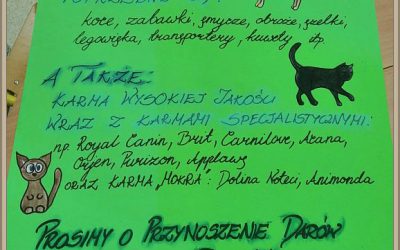 koce, zabawki, smycze, obroże, szelki,
legowiska, transportery, kuwety itp
A TAKŻE:
KARMA WYSOKIEJ JAKOŚCI
WRAZ Z KARMAMI SPECJALISTYCZNYMI:
np. Royal Canin, Brit, Carnilove, Acana,
Orijen, Purizon, Applaws
ORAZ KARMA „MOKRA": Dolina Noteci, Animonda
PROSIMY O PRZYNOSZENIE DARÓW